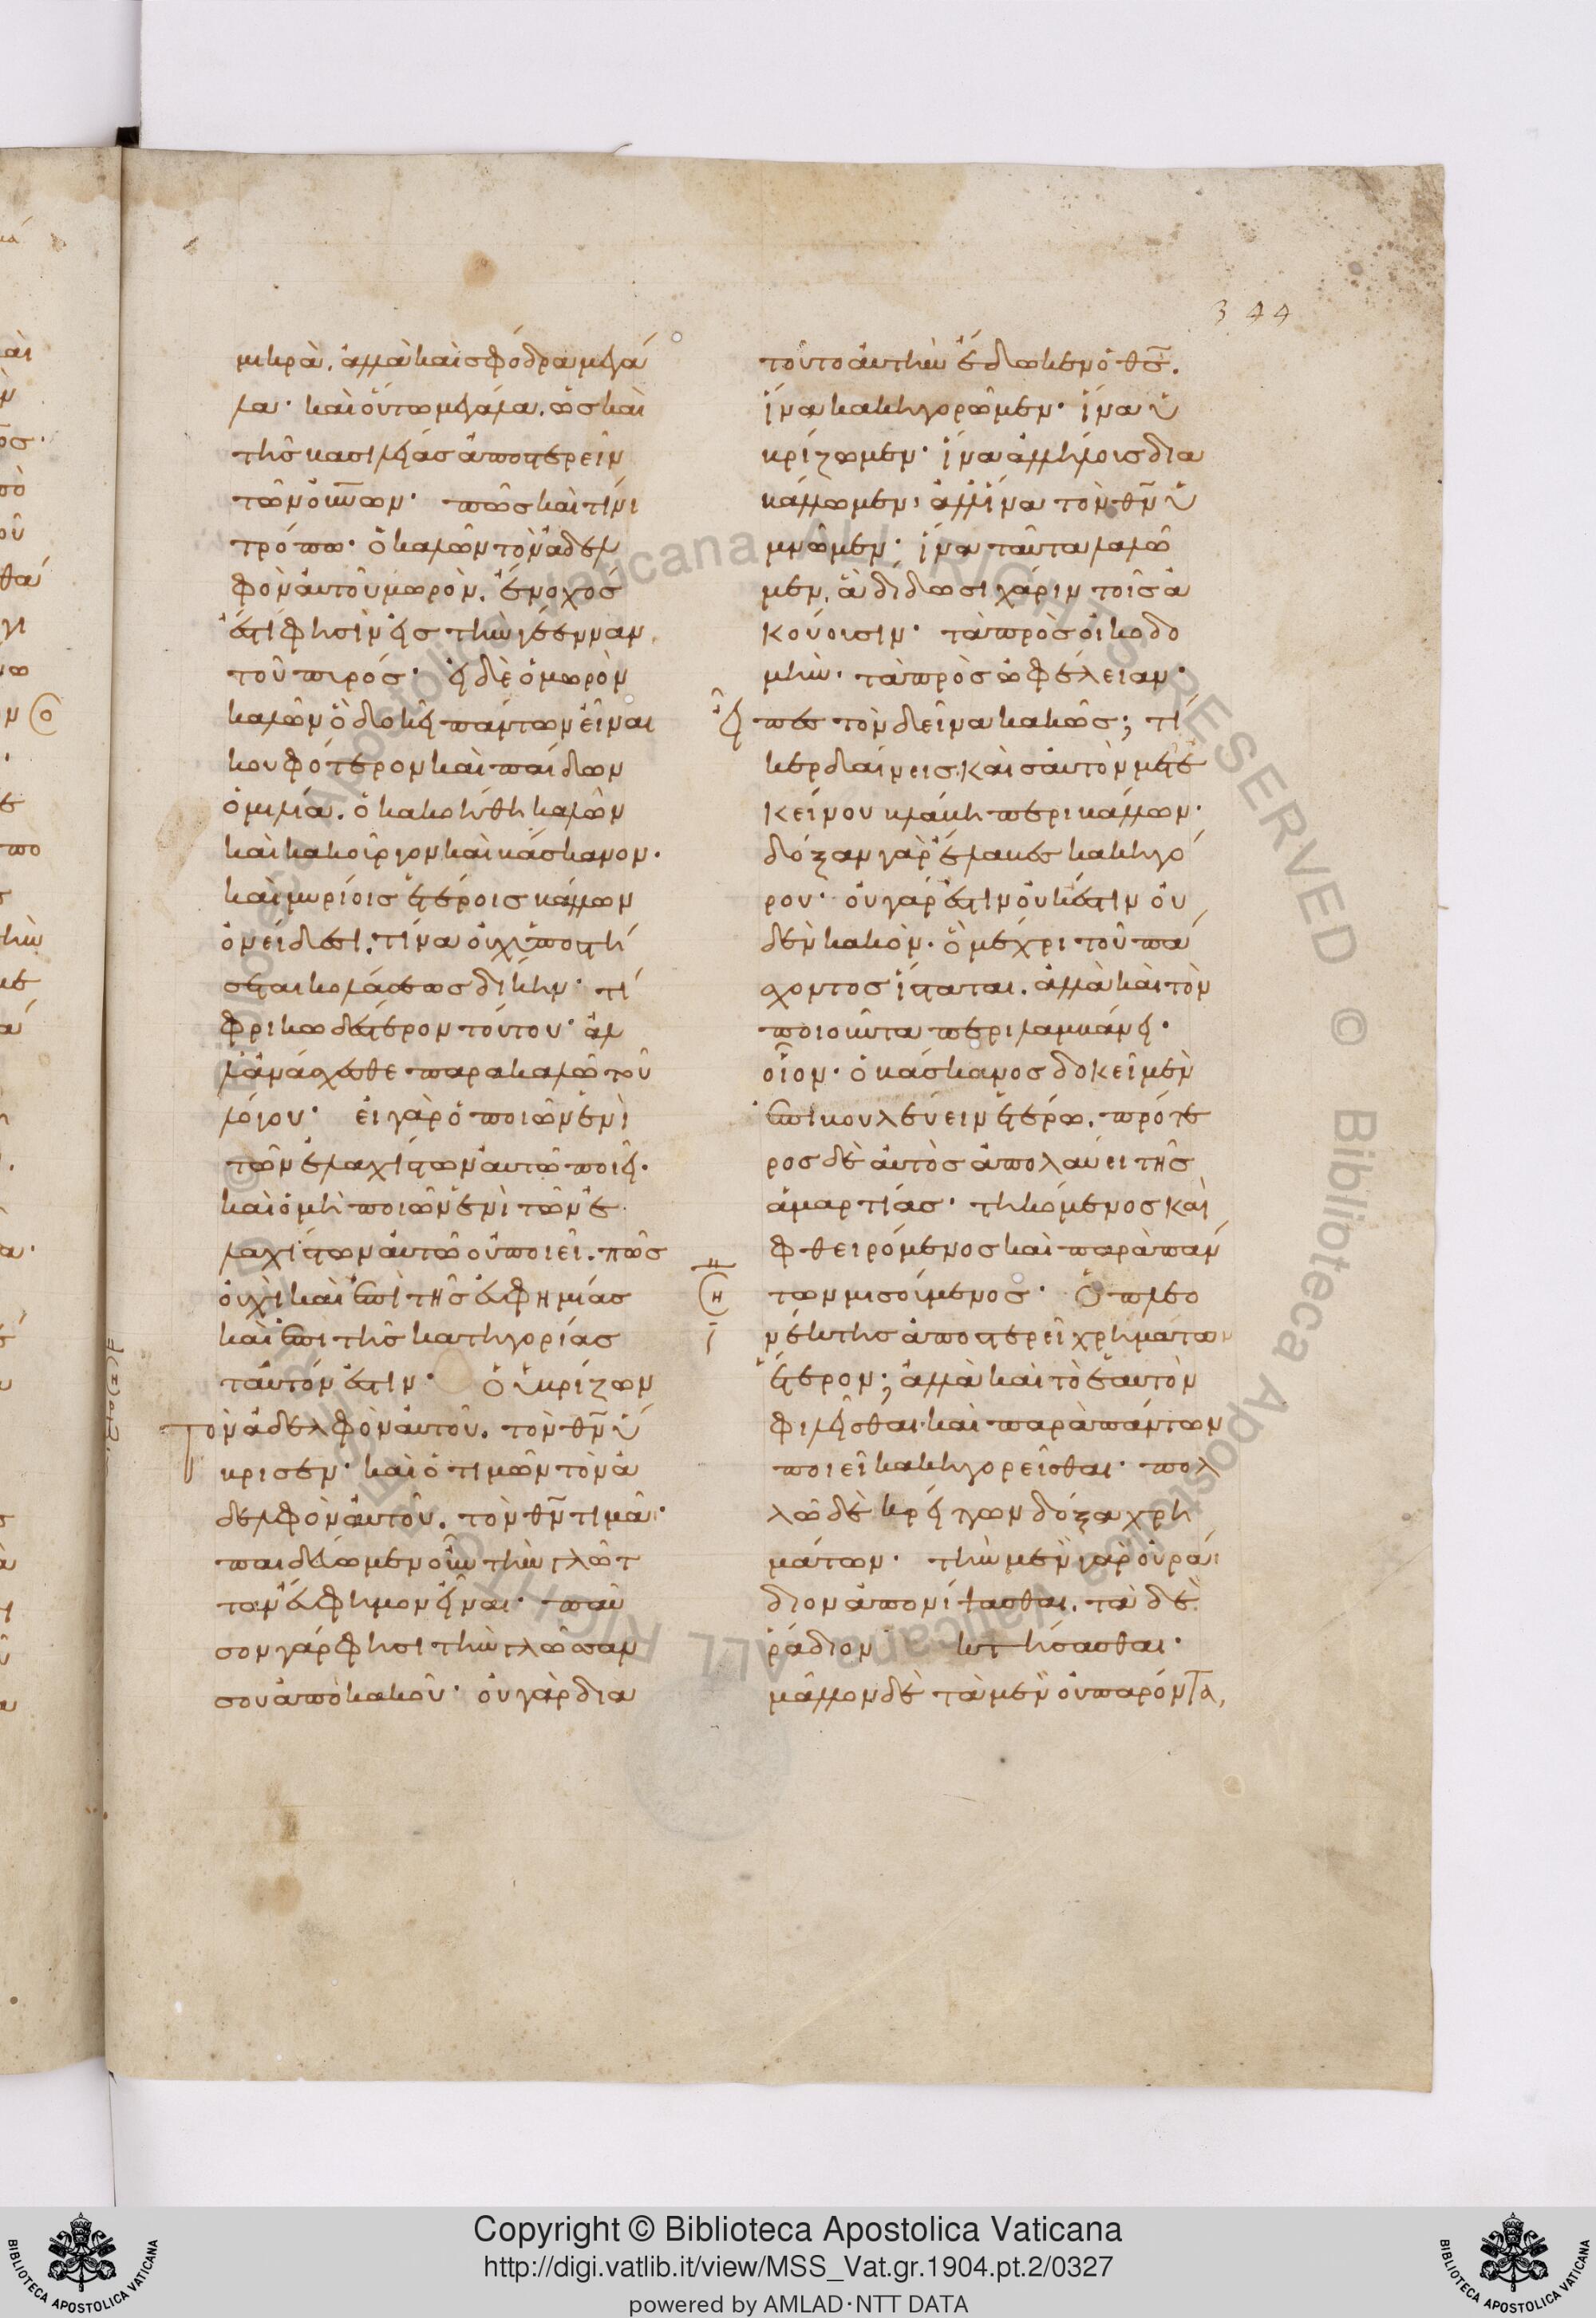 344
μικρὰ. ἀλλὰ καὶ σφόδρα μεγά
λα· καὶ οὕτω μεγάλα. ὡς καὶ
τῆς βασιλείας ἀποστερεῖν
τῶν οὐνῶν· πῶς καὶ τίνι
τρόπω· ὁ καλῶν τὸν ἀδελ
φὸν αὐτοῦ μωρὸν. ἔνοχός
ἐστί φησιν εἰς τὴν γέενναν
τοῦ πυρός· εἰ δὲ ὁ μωρὸν
καλῶν ὃ δοκεῖ πάντων εἶναι
κουφότερον καὶ παίδων
ὁμιλία. ὁ κακοήθη καλῶν
καὶ κακοῦργον καὶ βάσκανον.
καὶ μυρίοις ἑτέροις βάλλων
ὀνείδεσι. τίνα οὐχ ὑποστή
σεται κολάσεως δίκην· τί
φρικωδέστερον τούτου· ἀλ
λ' ἀνάσχεσθε παρακαλῶ τοῦ
λόγου· εἰ γὰρ ὁ ποιῶν ἑνὶ
τῶν ἐλαχίστων αὐτῶ ποιεῖ.
καὶ ὁ μὴ ποιῶν ἑνὶ τῶν ἐ
λαχίστων αὐτῶ οὐ ποιεῖ. πῶς
οὐχὶ καὶ ἐπὶ τῆς εὐφημίας
καὶ ἐπι τῆς κατηγορίας
ταὐτόν ἐστιν· Ὁ ὑβρίζων
τὸν ἀδελφὸν αὐτοῦ. τὸν θν ὕ
βρισεν· καὶ ὁ τιμῶν τὸν ἀ
δελφὸν αὐτοῦ. τὸν θν τιμᾶ·
παιδεύωμεν οὖν τὴν γλῶτ
ταν εὔφημον εἶναι· παῦ
σον γάρ φησι τὴν γλῶσσαν
σου ἀπὸ κακοῦ· οὐ γὰρ δια
τοῦτο αὐτὴν ἔδωκεν ὁ θς.
ἵνα κακηγορῶμεν· ἵνα ὑ
βρίζωμεν· ἵνα ἀλλήλους δια
βάλλωμεν· ἀλλ' ἵνα τὸν θν ὑ
μνῶμεν· ἵνα ταῦτα λαλῶ
μεν, ἃ δίδωσι χάριν τοῖς ἀ
κούουσιν· τὰ πρὸς οἰκοδο
μὴν· τὰ πρὸς ὠφέλειαν·
εἶπες τὸν δεῖνα κακῶς; τί
κερδαίνεις. καὶ σαυτὸν μετ' ἐ
κείνου βλάβη περιβάλλων·
δόξαν γὰρ ἔλαβες κακηγό
ρου· οὐ γάρ ἐστιν οὐκ ἔστιν οὐ
δὲν κακὸν. ὃ μέχρι τοῦ πά
σχοντος ἵσταται. ἀλλὰ καὶ τὸν
ποιοῦντα περιλαμβάνει·
οἷον· ὁ βάσκανος δοκεῖ μὲν
ἐπιβουλεύειν ἑτέρω. πρότε
ρος δὲ αὐτὸς ἀπολαύει τῆς
ἁμαρτίας· τηκόμενος καὶ
φθειρόμενος καὶ παρὰ πάν
η
των μισούμενος· Ὁ πλεο
νέκτης ἀποστερεῖ χρημάτων
ἕτερον; ἀλλὰ καὶ τὸ ἑαυτὸν
φιλεῖσθαι· καὶ παρὰ πάντων
ποιεῖ κακηγορεῖσθαι· πολ
λῶ δὲ κρείττων δόξα χρη
μάτων· τὴν μὲν γὰρ οὐ ρά
διον ἀπονίψασθαι. τὰ δὲ
ράδιον κτήσασθαι·
μᾶλλον δὲ τὰ μὲν οὐ παρόντα,
Copyright © Biblioteca Apostolica Vaticana
http://digi.vatlib.it/view/MSS_Vat.gr.1904.pt.2/0327
powered by AMLAD·NTT DATA